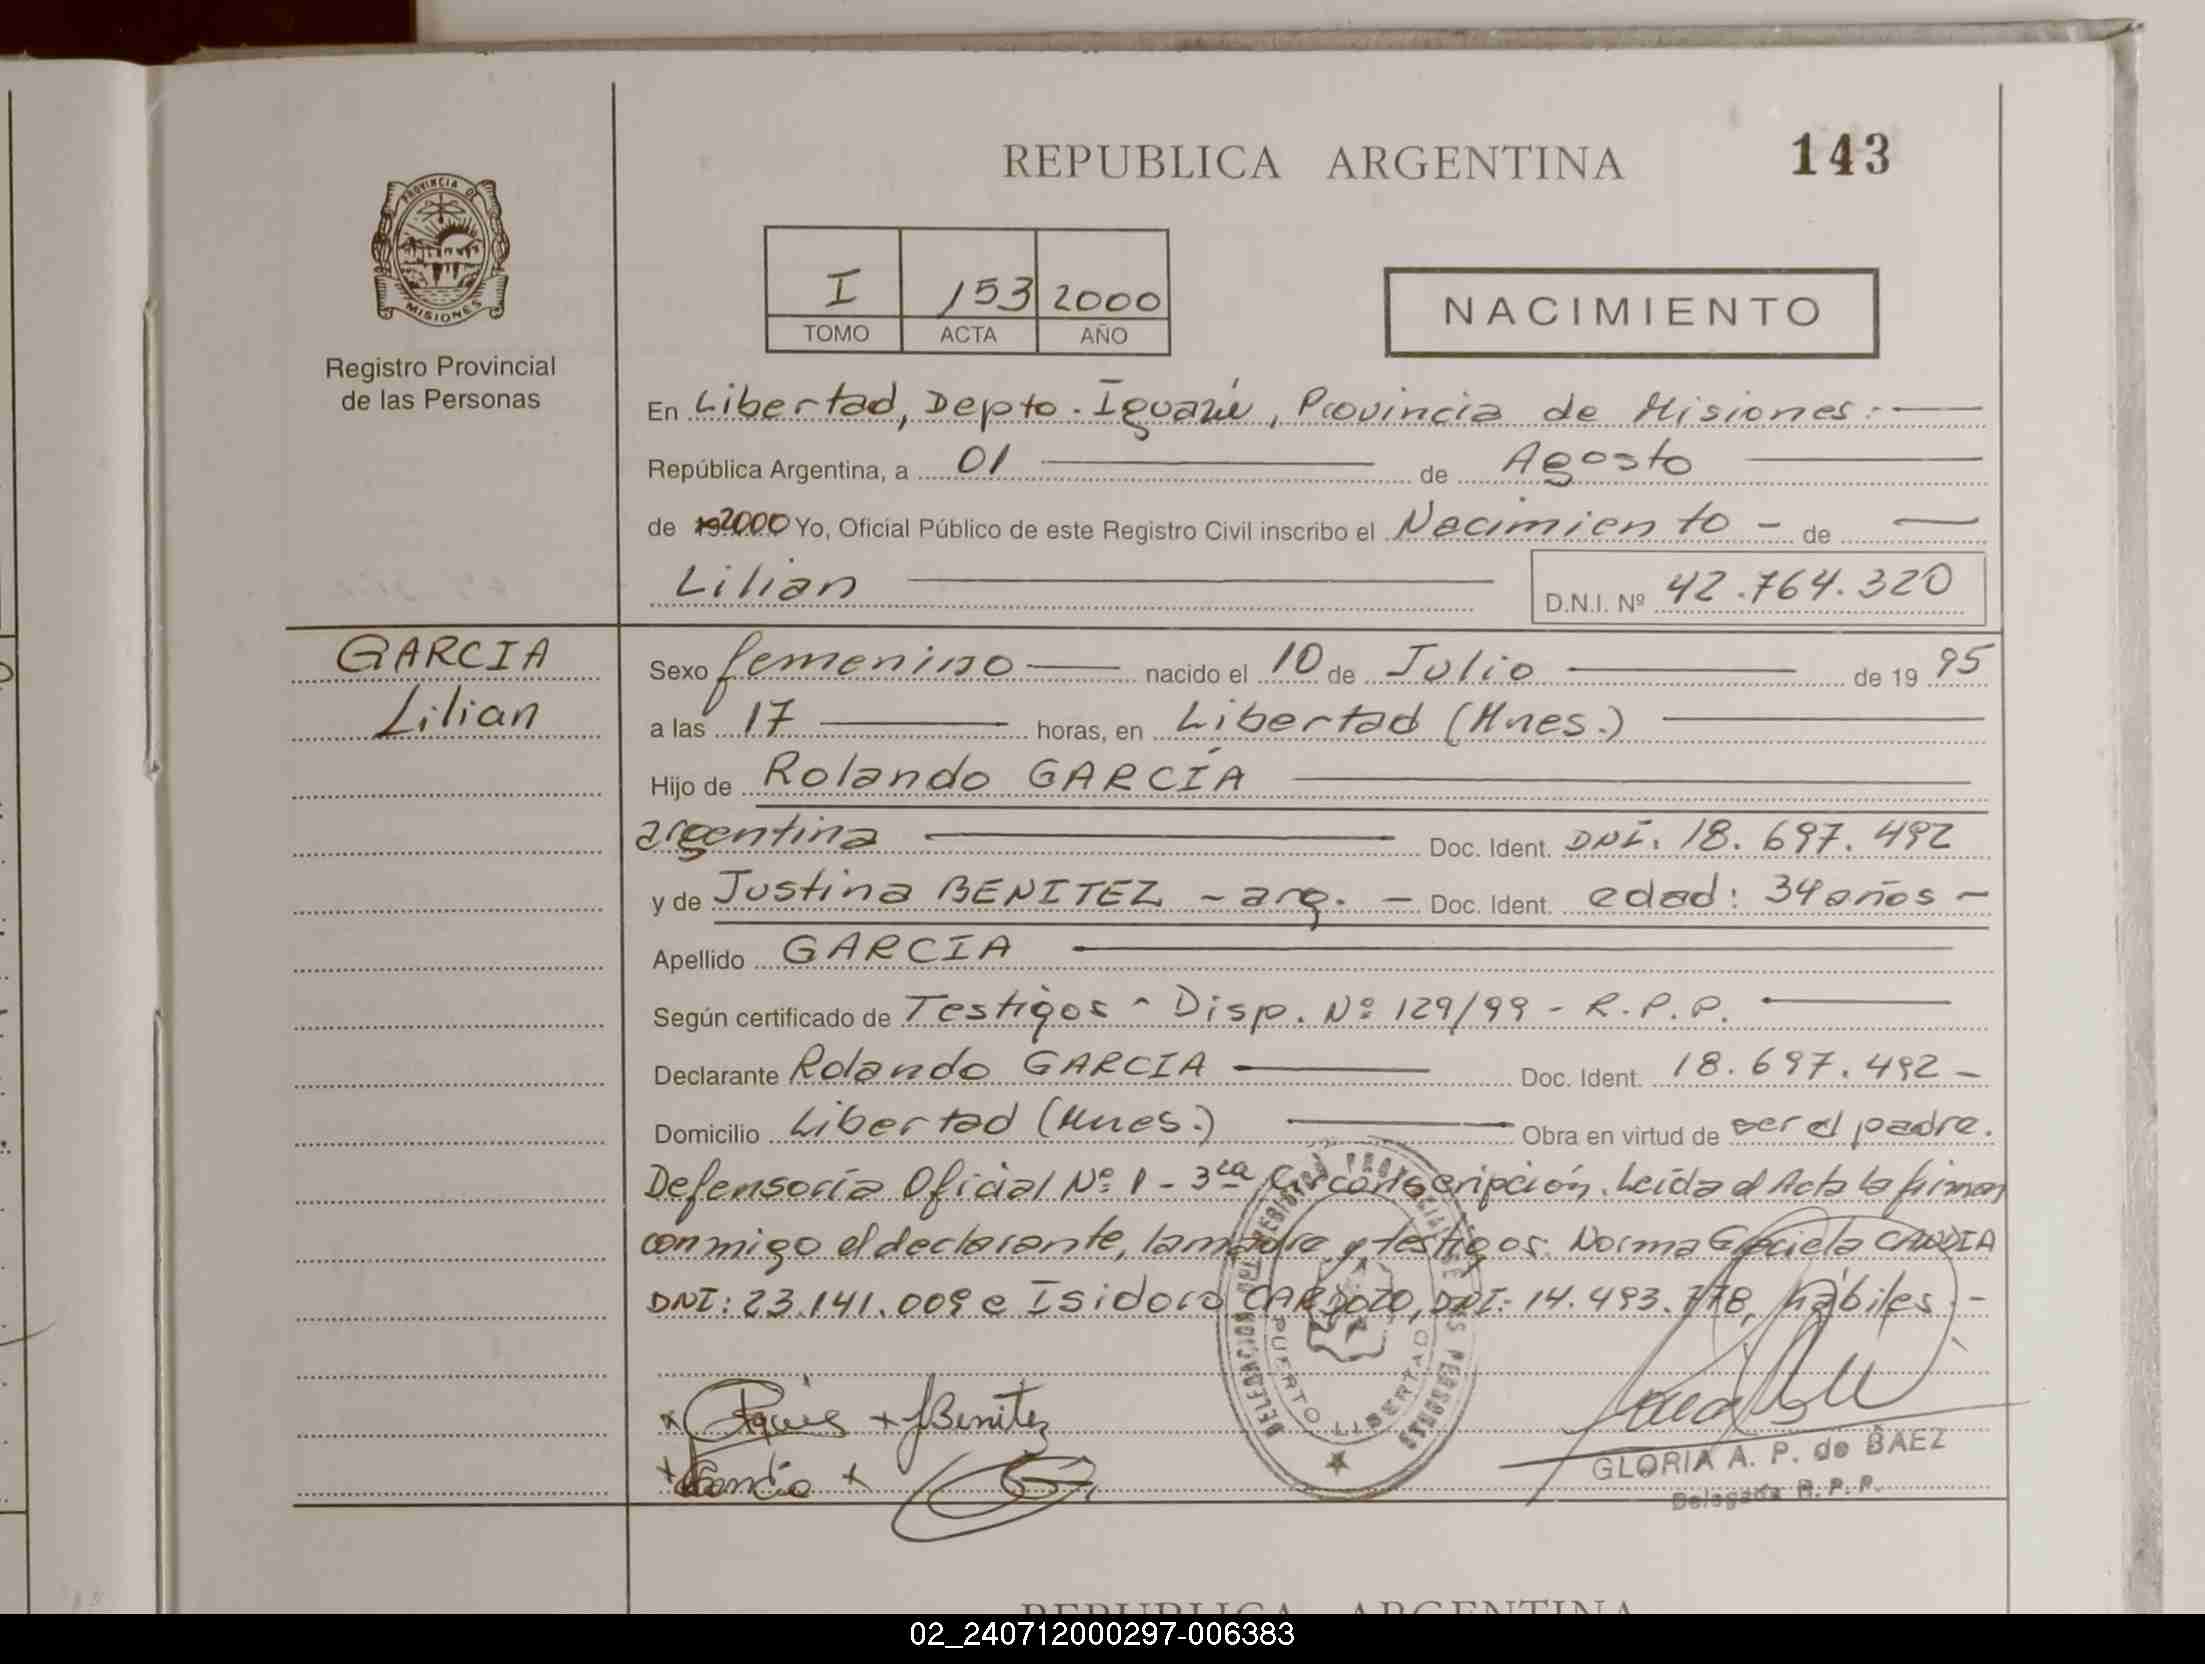 REPUBLICA ARGENTINA 143
PROVINCIA DE
MISIONES
Registro Provincial
de las Personas
I 153 2000
TOMO ACTA AÑO
NACIMIENTO
En Libertad, Depto. Iguazú, Provincia de Misiones.-
República Argentina, a 01 de Agosto
de 192000 Yo, Oficial Público de este Registro Civil inscribo el Nacimiento - de
Lilian D.N.I. Nº 42.764.320
GARCIA
Lilian
Sexo femenino nacido el 10 de Julio de 19 95
a las 17 horas, en Libertad (Mnes.)
Hijo de Rolando GARCÍA
argentina Doc. Ident. DNI. 18.697.492
y de Justina BENITEZ - arg. - Doc. Ident. edad: 34 años -
Apellido GARCIA
Según certificado de Testigos - Disp. Nº 129/99 - R.P.P.
Declarante Rolando GARCIA Doc. Ident. 18.697.492 -
Domicilio Libertad (Mnes.) Obra en virtud de ser el padre.
Defensoría Oficial Nº 1 - 3ra Circunscripción. Leída el Acta la firman
conmigo el declarante, la madre y testigos Norma Graciela CANDIA
DNI: 23.141.009 e Isidoro CARDOZO, DNI: 14.493.778, hábiles.-
DELEGACION DEL REGISTRO PROVINCIAL DE LAS PERSONAS
PUERTO LIBERTAD
JBenitez
GLORIA A. P. de BAEZ
Delegada R. P. P.
REPUBLICA ARGENTINA
02_240712000297-006383